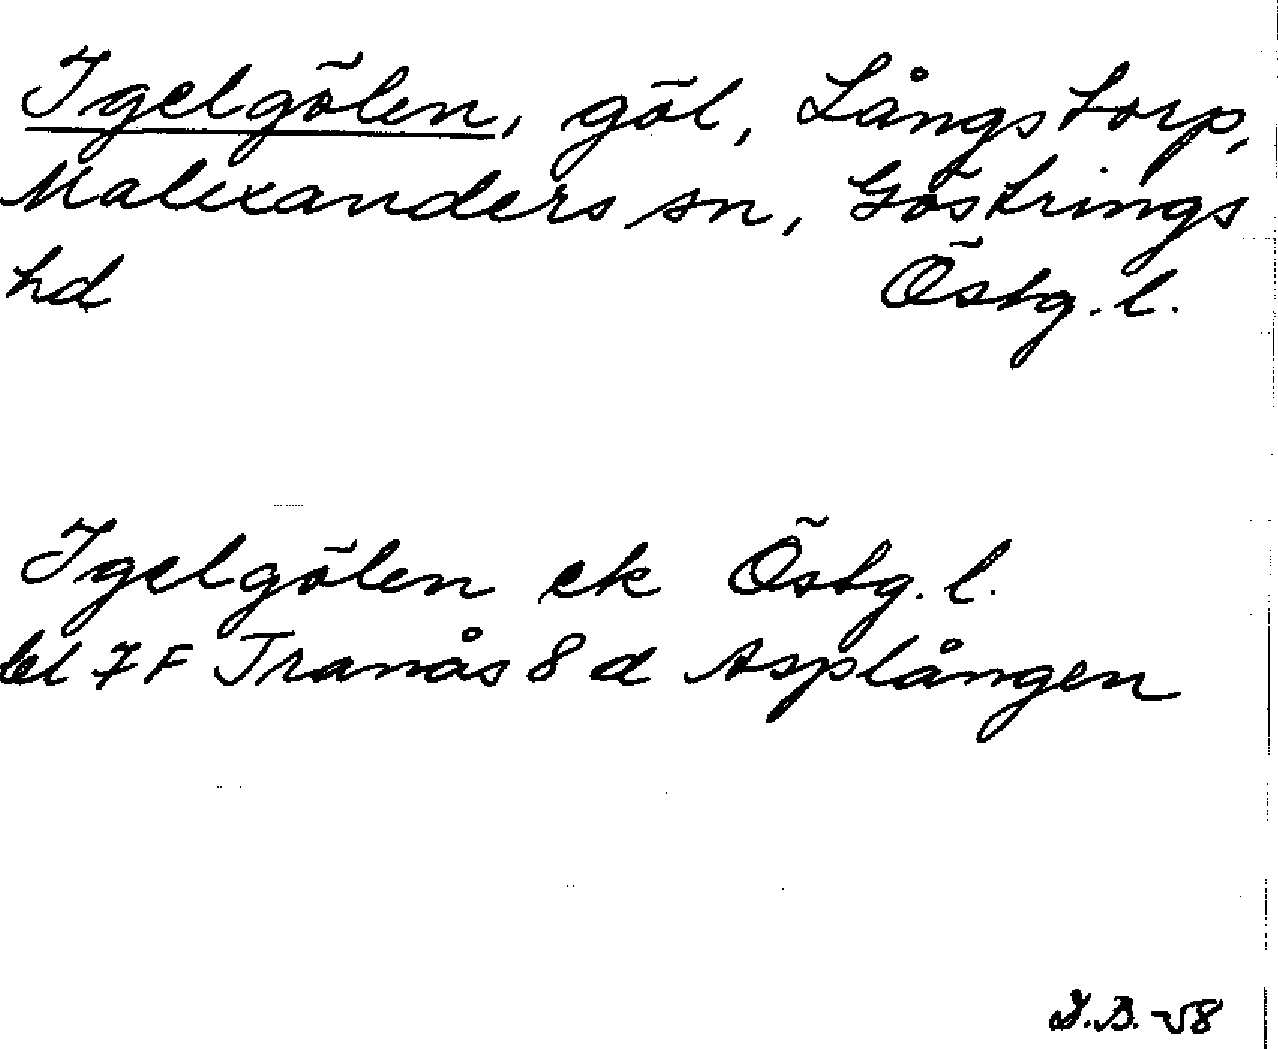 Igelgölen, göl, Långstorp,
Malexanders sn, Göstrings
hd Östg. l.
Igelgölen ek Östg. l.
bl 7 F Tranås 8 d Asplången
D.B. -58